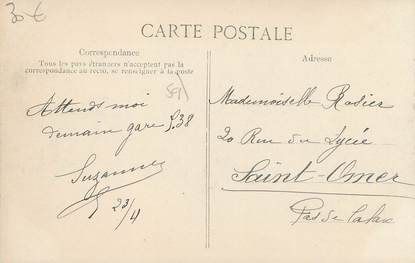 30 €
CARTE POSTALE
Correspondance
Tous les pays étrangers n'acceptent pas la
correspondance au recto, se renseigner à la poste
Adresse
Attends moi
demain gare 5.38
Suzanne
23/4
Mademoiselle Rosier
20 Rue du Lycée
Saint-Omer
Pas de Calais